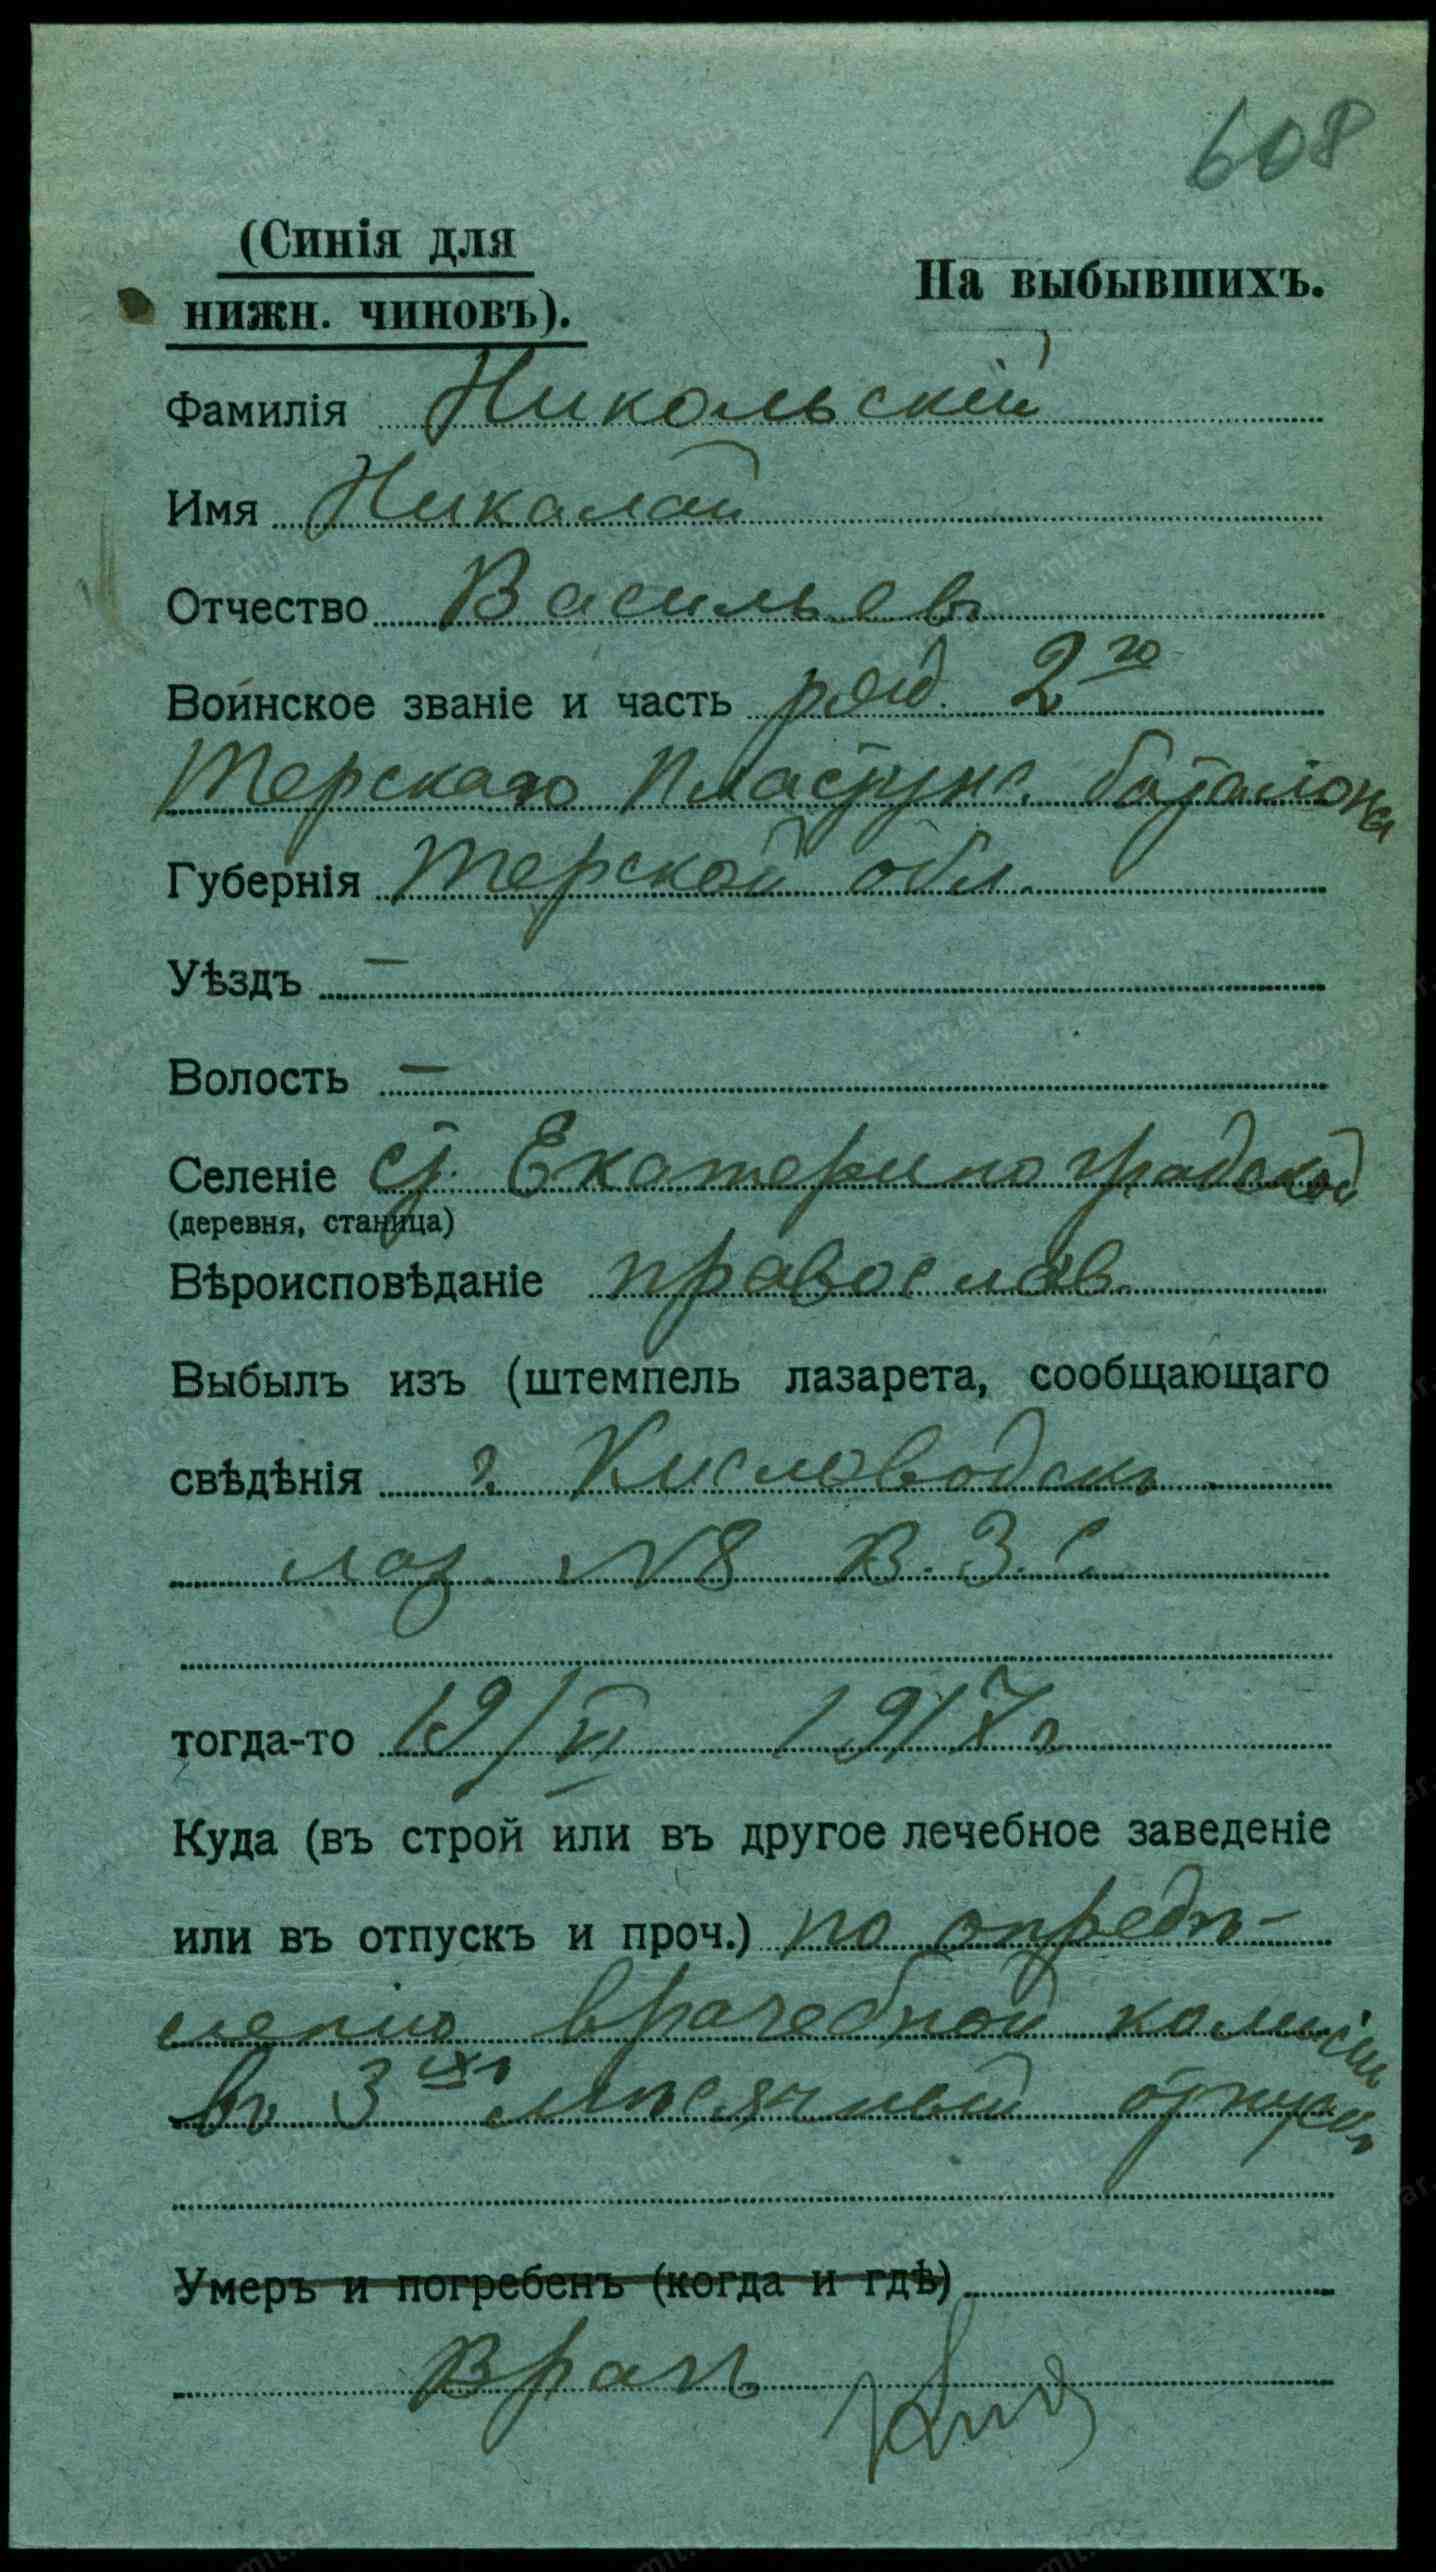 608
(Синія для
нижн. чиновъ).
На выбывшихъ.
Фамилія Никольскій
Имя Николай
Отчество Васильевъ
Воинское званіе и часть ряд. 2го
Терскаго Пластунс. баталіона
Губернія Терской обл.
Уѣздъ —
Волость —
Селеніе ст. Екатериноградской
(деревня, станица)
Вѣроисповѣданіе православ.
Выбылъ изъ (штемпель лазарета, сообщающаго
свѣдѣнія г. Кисловодскъ
лаз. №8 В.З.С.
тогда-то 19/VI 1917 г
Куда (въ строй или въ другое лечебное заведеніе
или въ отпускъ и проч.) по опредѣ-
ленію врачебной комисіи
въ 3ихъ мѣсячный отпускъ
Умеръ и погребенъ (когда и гдѣ)
Врачъ